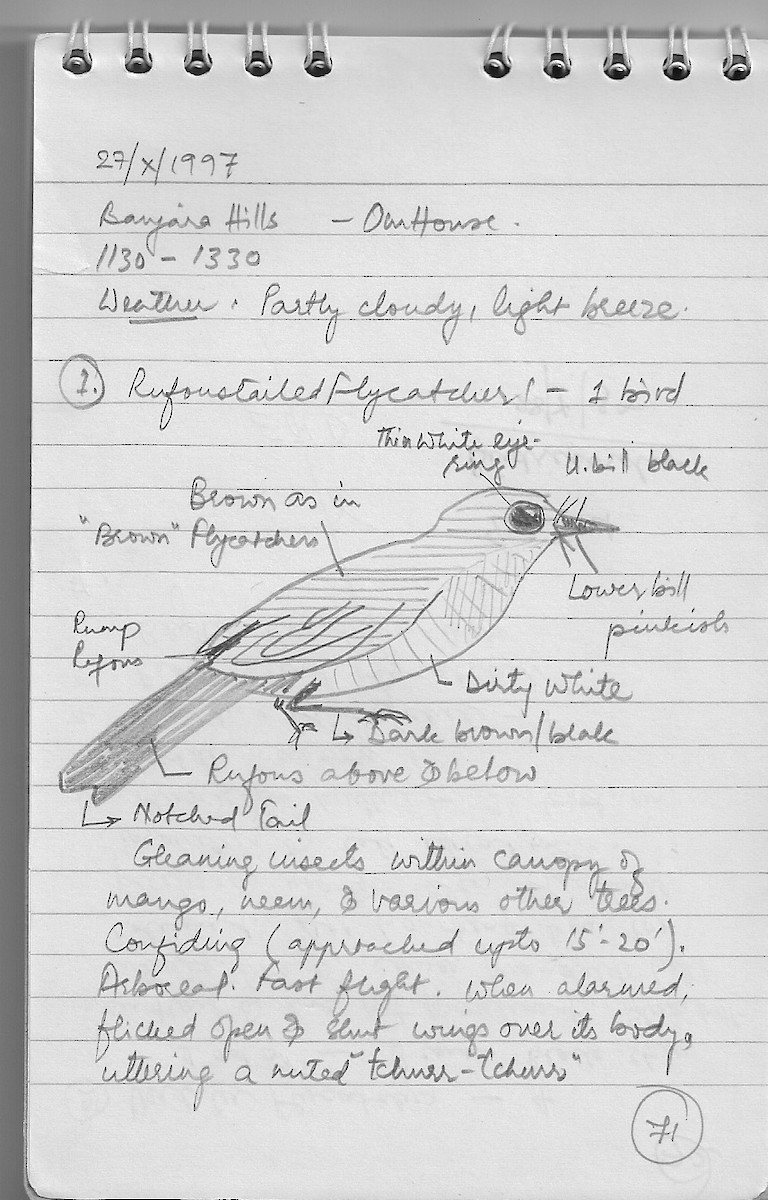 27/X/1997
Banjara Hills - Our House.
1130 - 1330
Weather. Partly cloudy, light breeze.
1. Rufoustailed Flycatcher! - 1 bird
Thin white eye-
ring
U. bill black
Brown as in
"Brown" Flycatchers
Lower bill
pinkish
Rump
Rufous
Dirty White
↳ Dark brown/black
Rufous above & below
↳ Notched Tail
Gleaning insects within canopy of
mango, neem, & various other trees.
Confiding (approached upto 15'-20').
Arboreal. Fast flight. When alarmed,
flicked open & shut wings over its body,
uttering a muted "tchurr-tchurr"
71